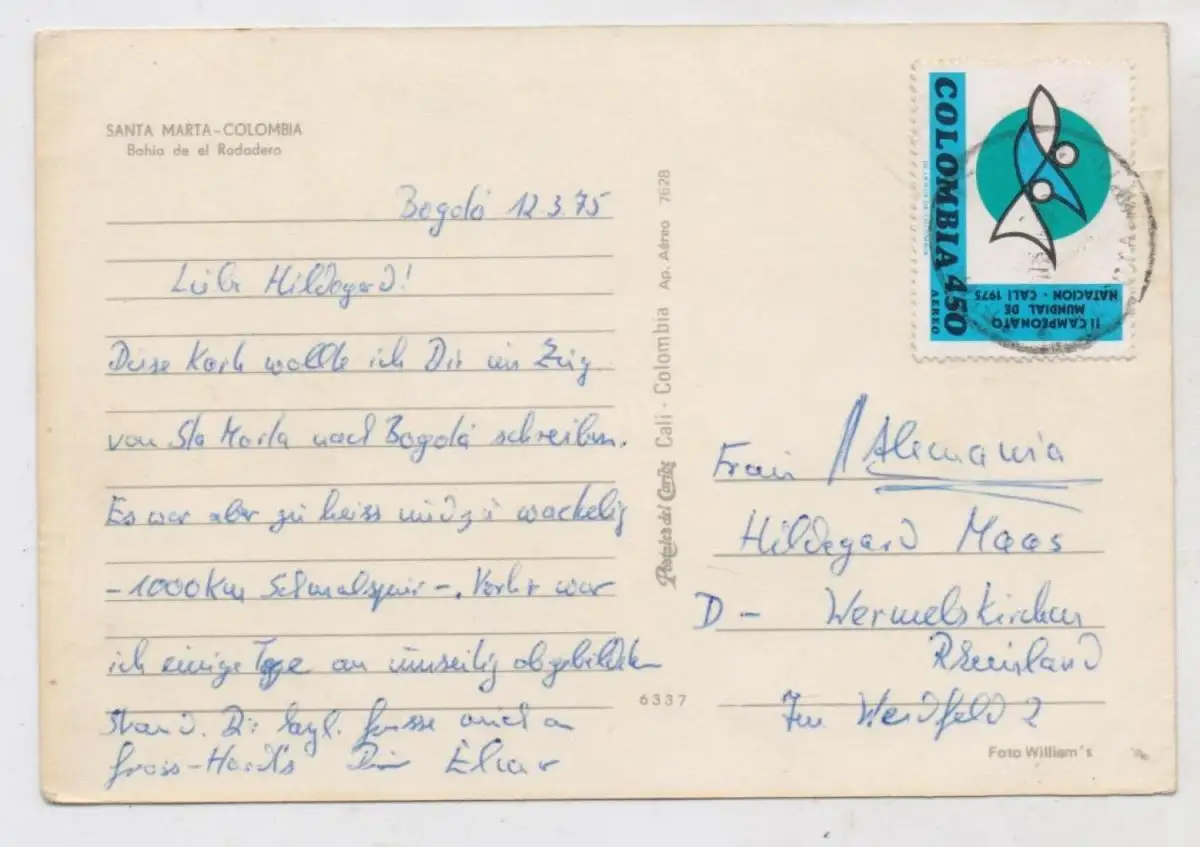 SANTA MARTA-COLOMBIA
Bahia de el Rodadero
Bogotá 12.3.75
Liebe Hildegard!
Diese Karte wollte ich Dir im Zug
von Sta Marta nach Bogotá schreiben.
Es war aber zu heiss und zu wackelig
-1000km Schmalspur-. Vorher war
ich einige Tage am umseitig abgebildeten
Strand. Dir herzl. Grüsse auch an
Gross-Hardt's Dein
Postales del Caribe Cali - Colombia Ap. Aéreo 7628
6337
COLOMBIA 450
AEREO
II CAMPEONATO
MUNDIAL DE
NATACION - CALI 1975
Frau / Alemania
Hildegard Maas
D - Wermelskirchen
Rheinland
Im Weidfeld 2
Foto William's